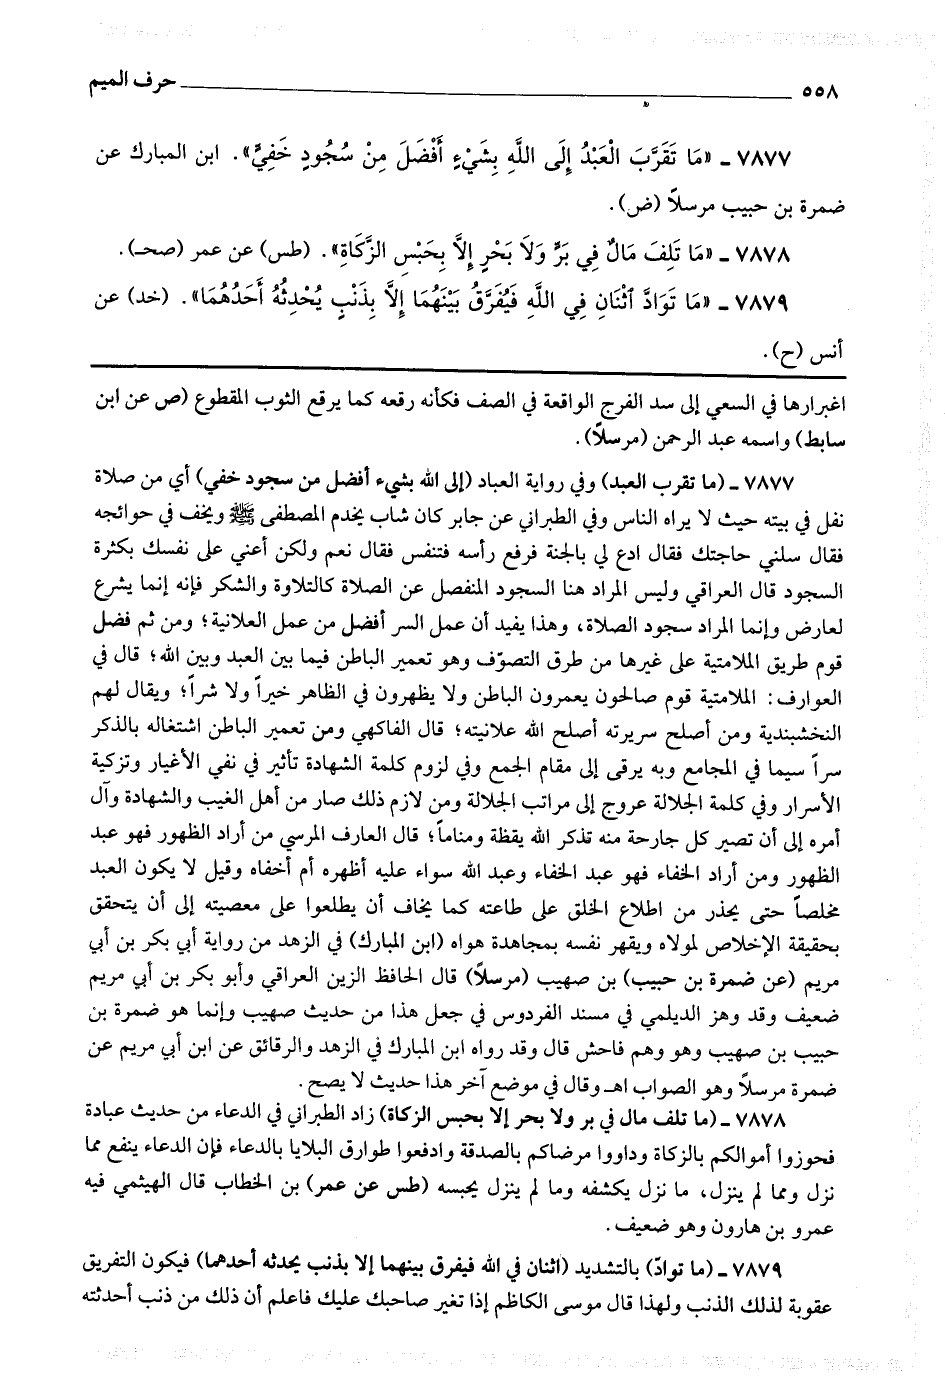 ٥٥٨ حرف الميم
٧٨٧٧ ـ «مَا تَقَرَّبَ الْعَبْدُ إِلَى اللَّهِ بِشَيْءٍ أَفْضَلَ مِنْ سُجُودٍ خَفِيٍّ». ابن المبارك عن
ضمرة بن حبيب مرسلاً (ض).
٧٨٧٨ ـ «مَا تَلِفَ مَالٌ فِي بَرٍّ وَلَا بَحْرٍ إِلَّا بِحَبْسِ الزَّكَاةِ». (طس) عن عمر (صحـ).
٧٨٧٩ ـ «مَا تَوَادَّ ٱثْنَانِ فِي اللَّهِ فَيُفَرَّقُ بَيْنَهُمَا إِلَّا بِذَنْبٍ يُحْدِثُهُ أَحَدُهُمَا». (خد) عن
أنس (ح).
اغبرارها في السعي إلى سد الفرج الواقعة في الصف فكأنه رقعه كما يرقع الثوب المقطوع (ص عن ابن
سابط) واسمه عبد الرحمن (مرسلاً).
٧٨٧٧ ـ (ما تقرب العبد) وفي رواية العباد (إلى الله بشيء أفضل من سجود خفي) أي من صلاة
نفل في بيته حيث لا يراه الناس وفي الطبراني عن جابر كان شاب يخدم المصطفى ﷺ ويخف في حوائجه
فقال سلني حاجتك فقال ادع لي بالجنة فرفع رأسه فتنفس فقال نعم ولكن أعني على نفسك بكثرة
السجود قال العراقي وليس المراد هنا السجود المنفصل عن الصلاة كالتلاوة والشكر فإنه إنما يشرع
لعارض وإنما المراد سجود الصلاة، وهذا يفيد أن عمل السر أفضل من عمل العلانية؛ ومن ثم فضل
قوم طريق الملامتية على غيرها من طرق التصوّف وهو تعمير الباطن فيما بين العبد وبين الله؛ قال في
العوارف: الملامتية قوم صالحون يعمرون الباطن ولا يظهرون في الظاهر خيراً ولا شراً؛ ويقال لهم
النخشبندية ومن أصلح سريرته أصلح الله علانيته؛ قال الفاكهي ومن تعمير الباطن اشتغاله بالذكر
سراً سيما في المجامع وبه يرقى إلى مقام الجمع وفي لزوم كلمة الشهادة تأثير في نفي الأغيار وتزكية
الأسرار وفي كلمة الجلالة عروج إلى مراتب الجلالة ومن لازم ذلك صار من أهل الغيب والشهادة وآل
أمره إلى أن تصير كل جارحة منه تذكر الله يقظة ومناماً؛ قال العارف المرسي من أراد الظهور فهو عبد
الظهور ومن أراد الخفاء فهو عبد الخفاء وعبد الله سواء عليه أظهره أم أخفاه وقيل لا يكون العبد
مخلصاً حتى يحذر من اطلاع الخلق على طاعته كما يخاف أن يطلعوا على معصيته إلى أن يتحقق
بحقيقة الإخلاص لمولاه ويقهر نفسه بمجاهدة هواه (ابن المبارك) في الزهد من رواية أبي بكر بن أبي
مريم (عن ضمرة بن حبيب) بن صهيب (مرسلاً) قال الحافظ الزين العراقي وأبو بكر بن أبي مريم
ضعيف وقد وهز الديلمي في مسند الفردوس في جعل هذا من حديث صهيب وإنما هو ضمرة بن
حبيب بن صهيب وهو وهم فاحش قال وقد رواه ابن المبارك في الزهد والرقائق عن ابن أبي مريم عن
ضمرة مرسلاً وهو الصواب اهـ وقال في موضع آخر هذا حديث لا يصح.
٧٨٧٨ ـ (ما تلف مال في بر ولا بحر إلا بحبس الزكاة) زاد الطبراني في الدعاء من حديث عبادة
فحوزوا أموالكم بالزكاة وداووا مرضاكم بالصدقة وادفعوا طوارق البلايا بالدعاء فإن الدعاء ينفع مما
نزل ومما لم ينزل، ما نزل يكشفه وما لم ينزل يحبسه (طس عن عمر) بن الخطاب قال الهيثمي فيه
عمرو بن هارون وهو ضعيف.
٧٨٧٩ ـ (ما توادّ) بالتشديد (اثنان في الله فيفرق بينهما إلا بذنب يحدثه أحدهما) فيكون التفريق
عقوبة لذلك الذنب ولهذا قال موسى الكاظم إذا تغير صاحبك عليك فاعلم أن ذلك من ذنب أحدثته